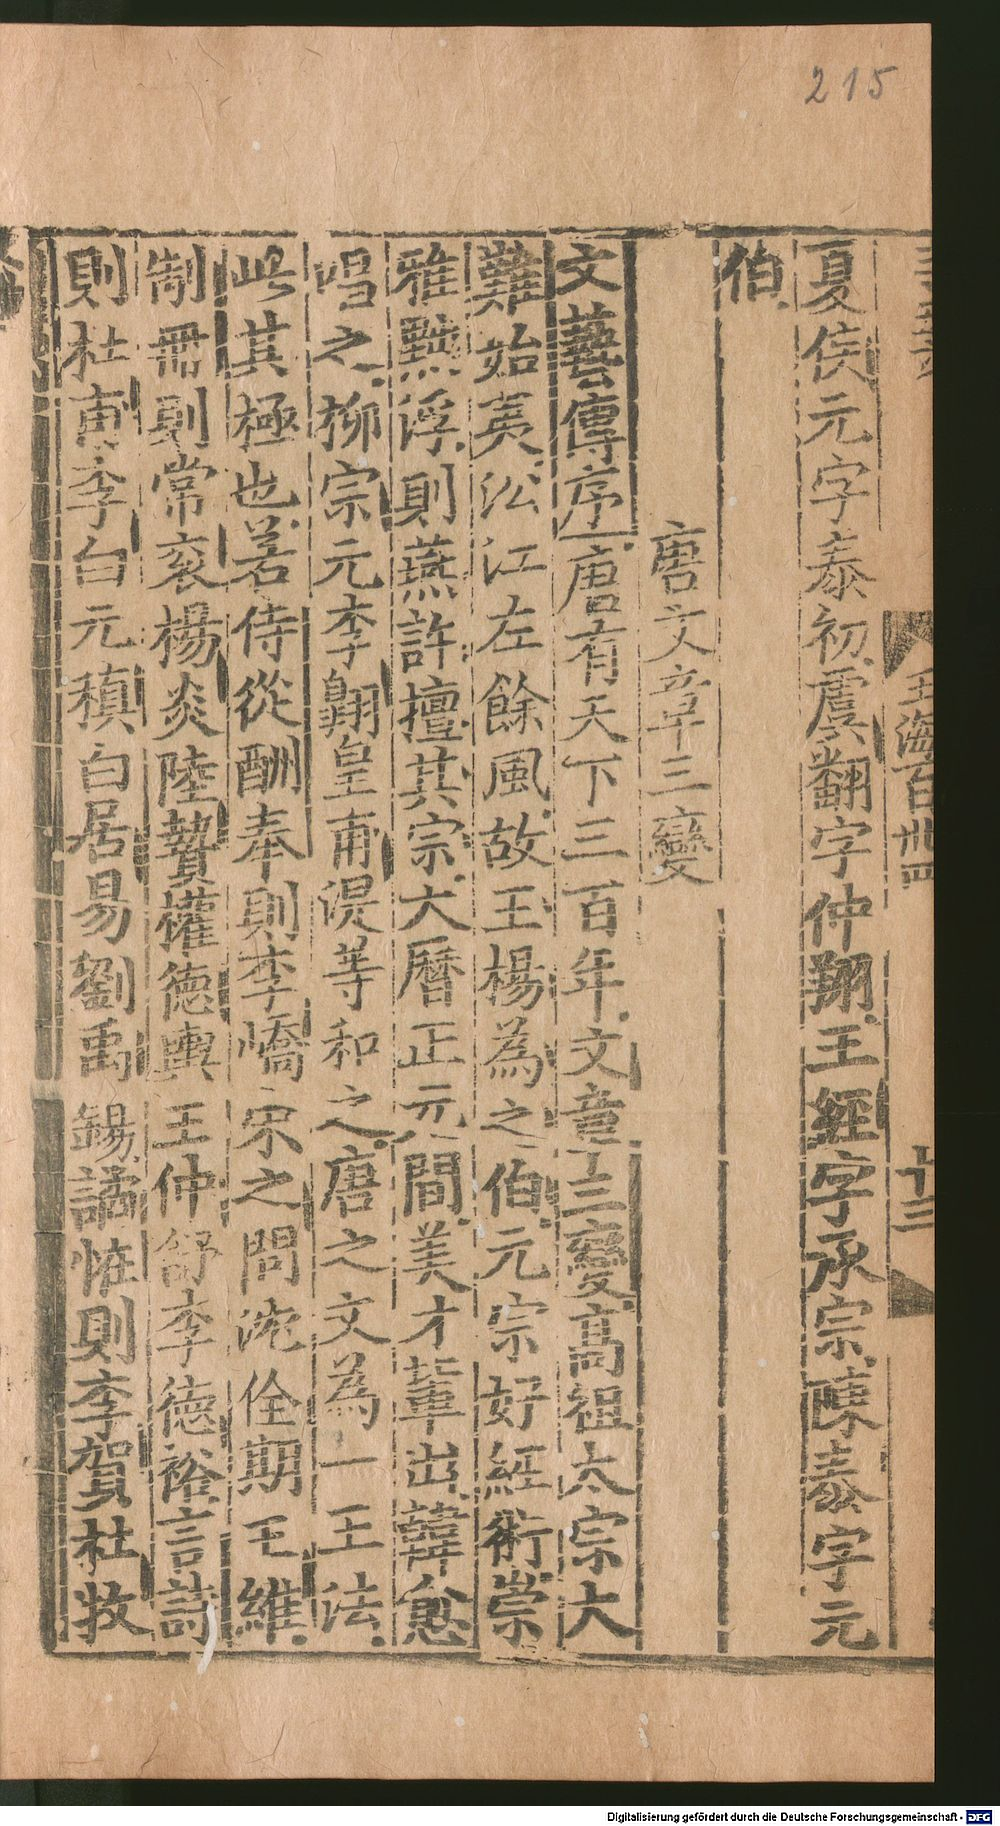 215
玉海百卅四
十三
夏侯元字泰初虞翻字仲翔王經字承宗陳泰字元
伯
唐文章三變
文藝傳序唐有天下三百年文章三變高祖太宗大
難始夷㳂江左餘風故王楊為之伯元宗好經術崇
雅黜浮則燕許擅其宗大曆正元間美才輩出韓愈
唱之柳宗元李翺皇甫湜等和之唐之文為一王法
此其極也若侍從酬奉則李嶠宋之問沈佺期王維
制冊則常袞楊炎陸贄權德輿王仲舒李德裕言詩
則杜甫李白元稹白居易劉禹錫譎怪則李賀杜牧
Digitalisierung gefördert durch die Deutsche Forschungsgemeinschaft - DFG